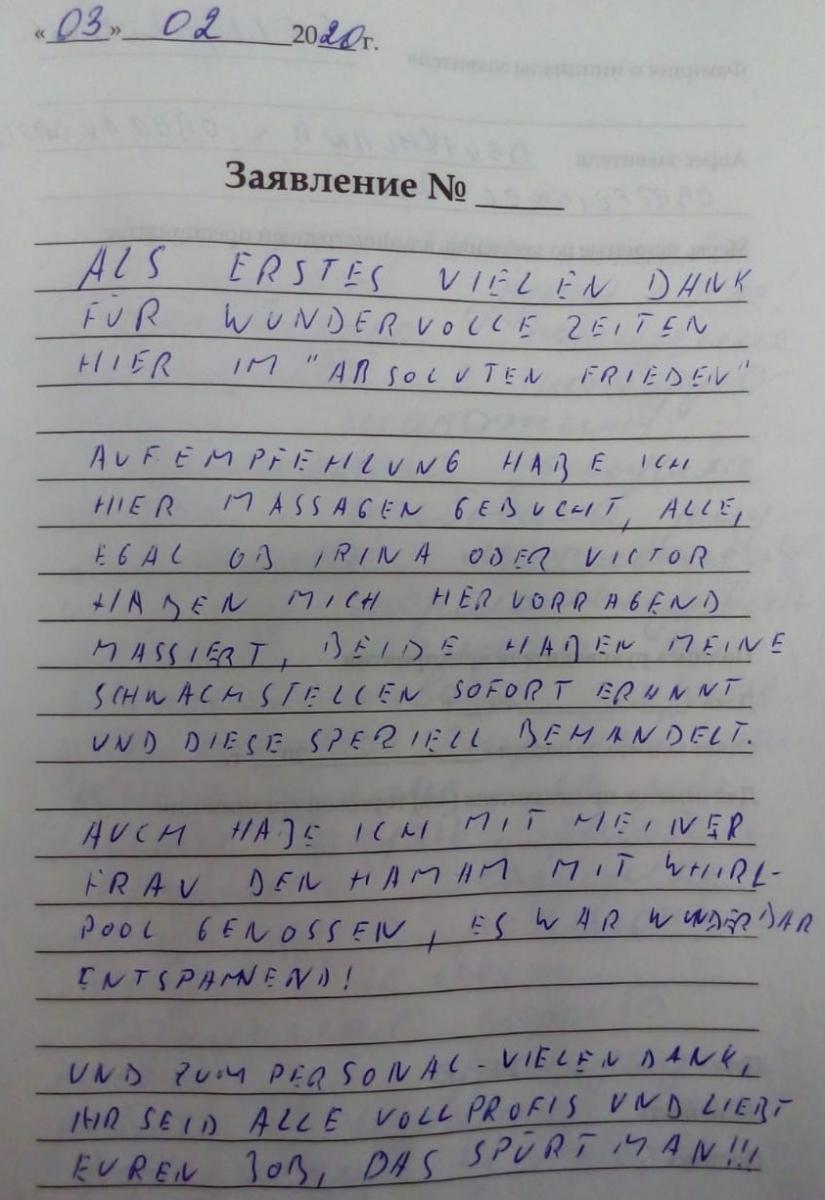 «03» 02 2020 г.
Заявление № ____
ALS ERSTES VIELEN DANK
FÜR WUNDERVOLLE ZEITEN
HIER IM "ABSOLUTEN FRIEDEN"
AUF EMPFEHLUNG HABE ICH
HIER MASSAGEN GEBUCHT, ALLE,
EGAL OB IRINA ODER VICTOR
HABEN MICH HERVORRAGEND
MASSIERT, BEIDE HABEN MEINE
SCHWACHSTELLEN SOFORT ERKANNT
UND DIESE SPEZIELL BEHANDELT.
AUCH HABE ICH MIT MEINER
FRAU DEN HAMAM MIT WHIRL-
POOL GENOSSEN, ES WAR WUNDERBAR
ENTSPANNEND!
UND ZUM PERSONAL - VIELEN DANK,
IHR SEID ALLE VOLLPROFIS UND LIEBT
EUREN JOB, DAS SPÜRT MAN!!!